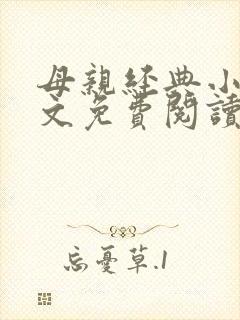 母親經典小
文免費閱讀
忘憂草.1